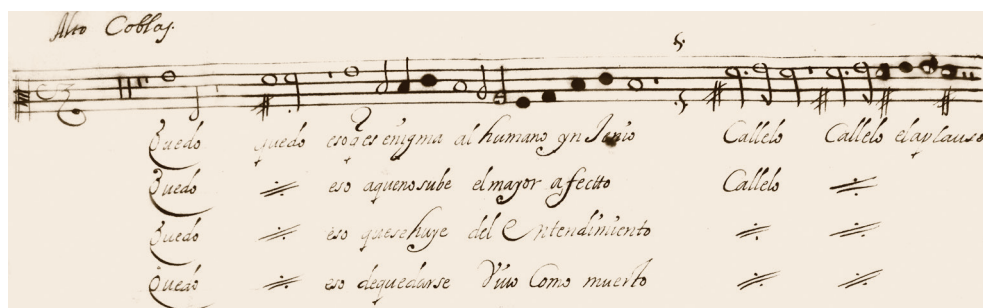 Alto Coblas.
Quedo quedo eso q̃ es enigma al humano ynJenio Callelo Callelo el aplauso
Quedo eso aquenosube el mayor afectto Callelo
Quedo eso quesehuye del Entendimiento
Quedo eso dequedarse Vivo Como muerto